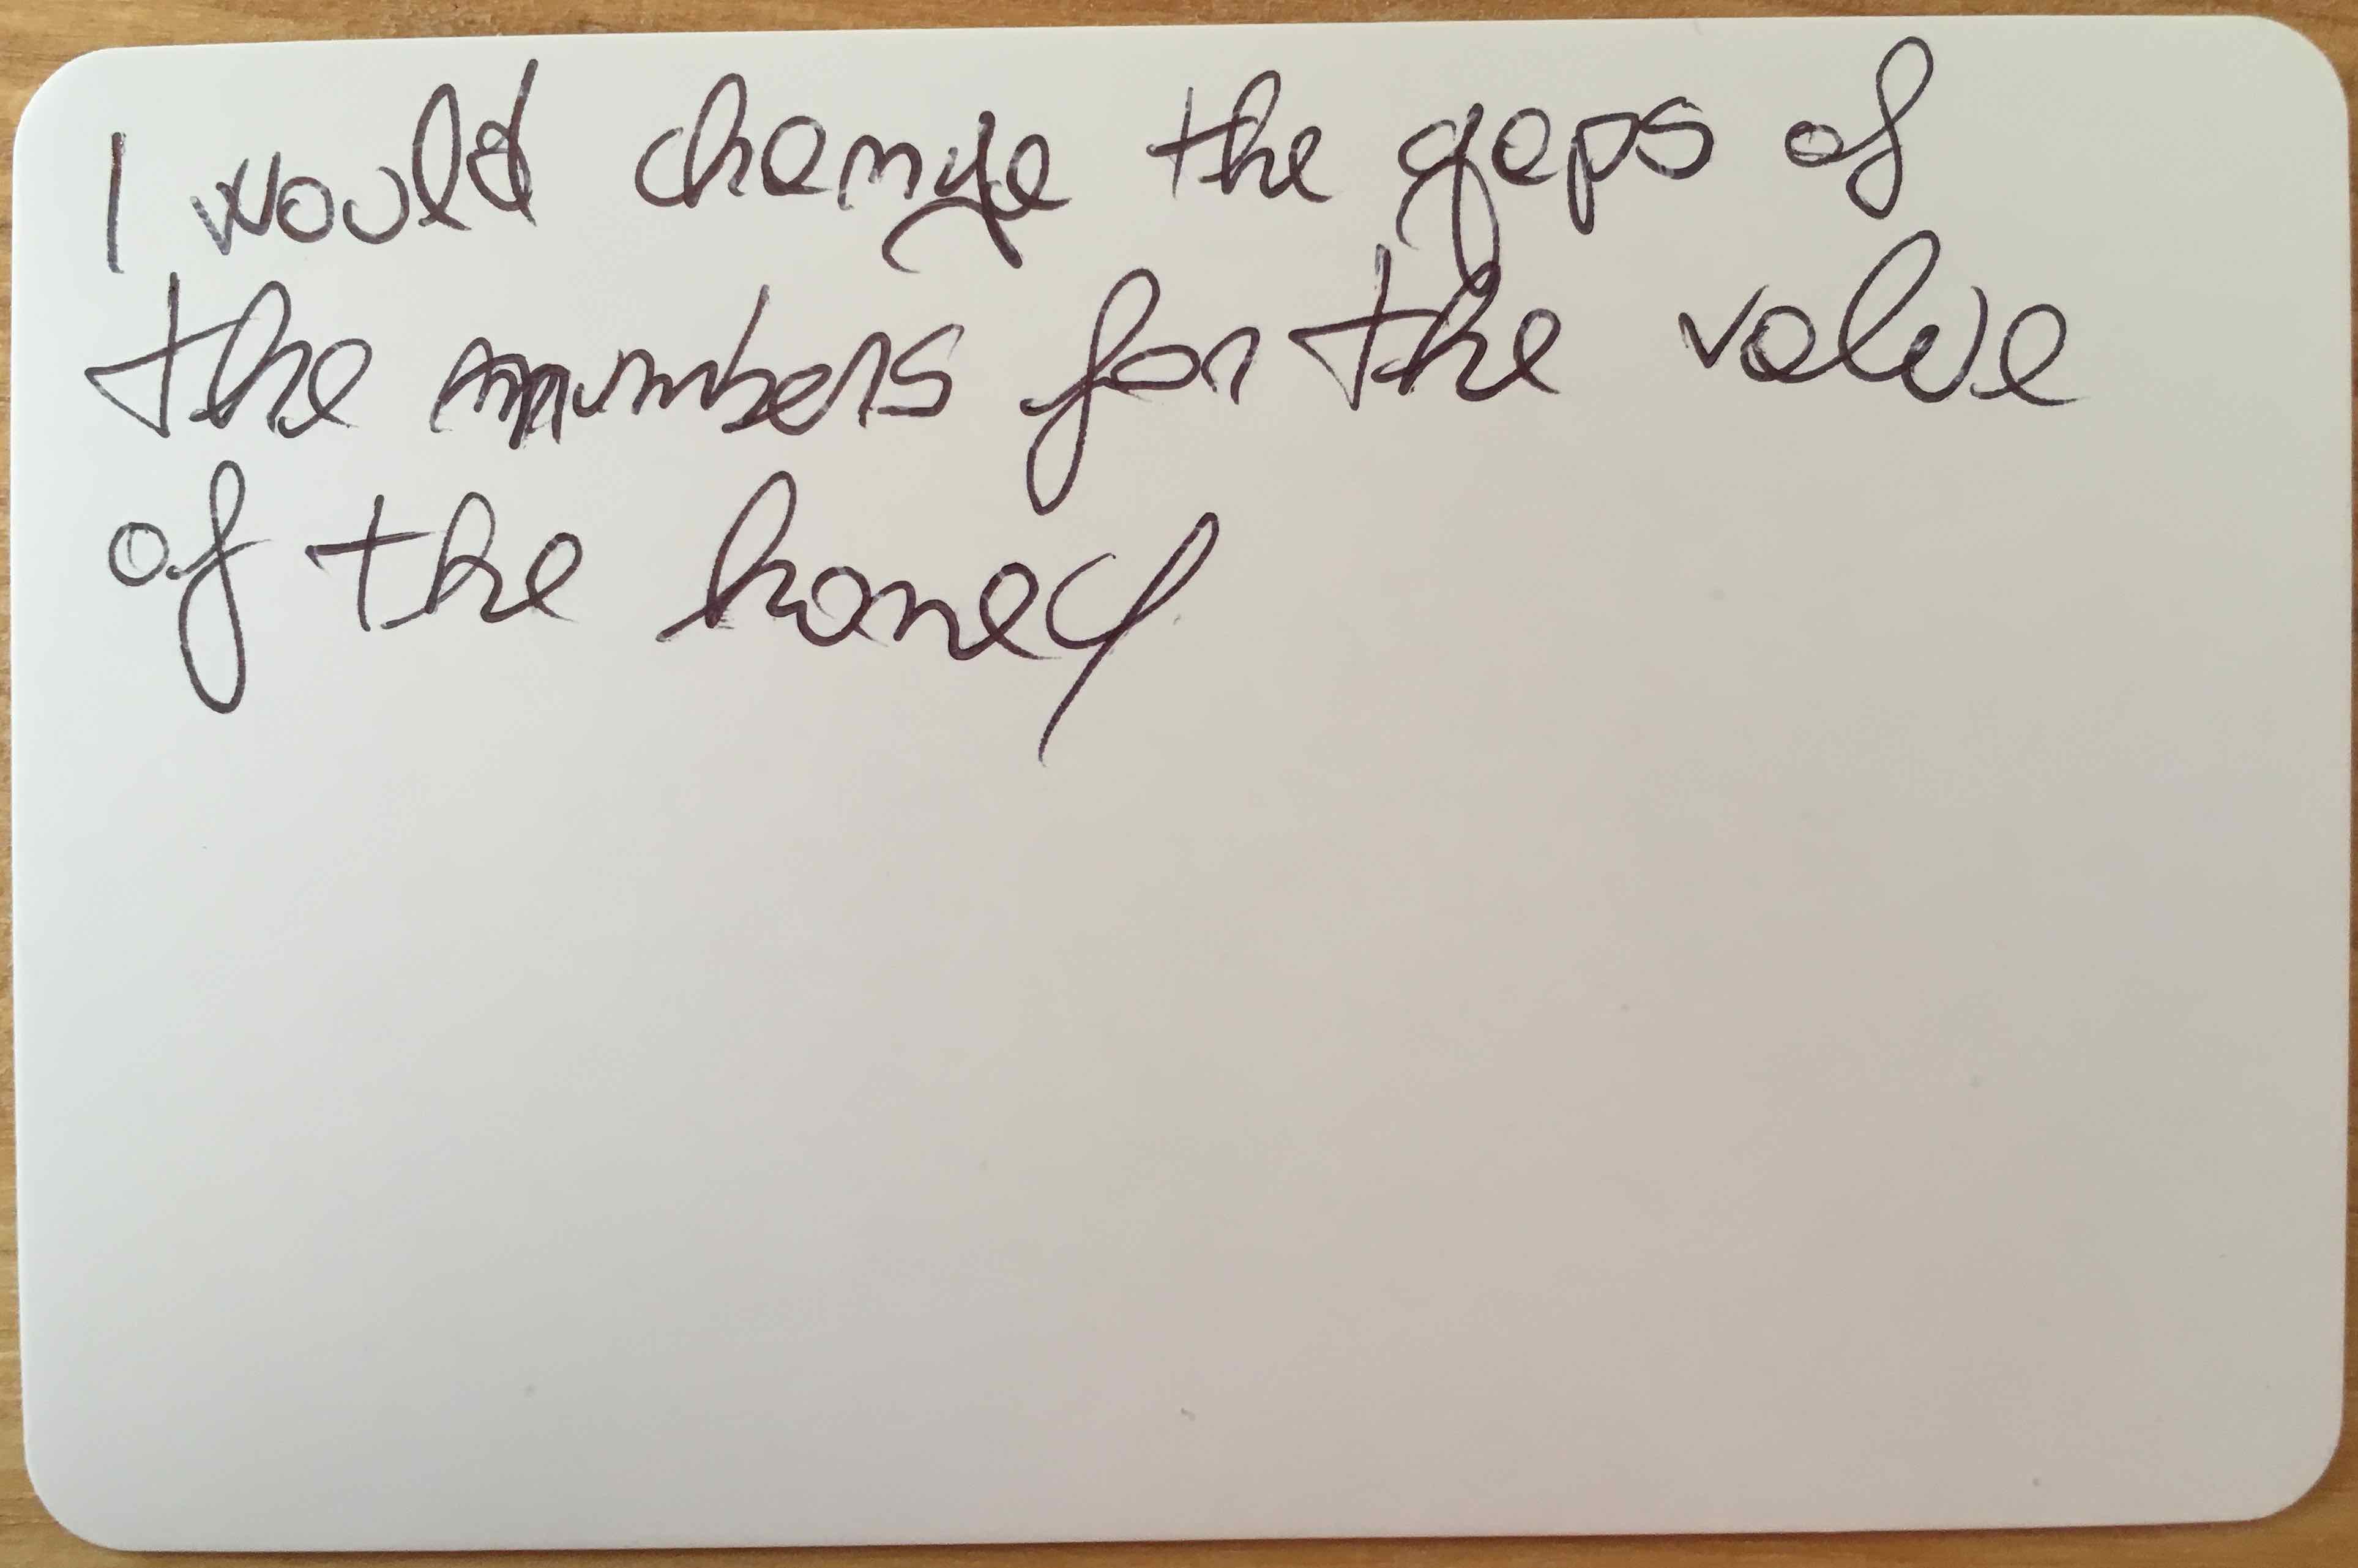 I would change the gaps of
the numbers for the value
of the honey